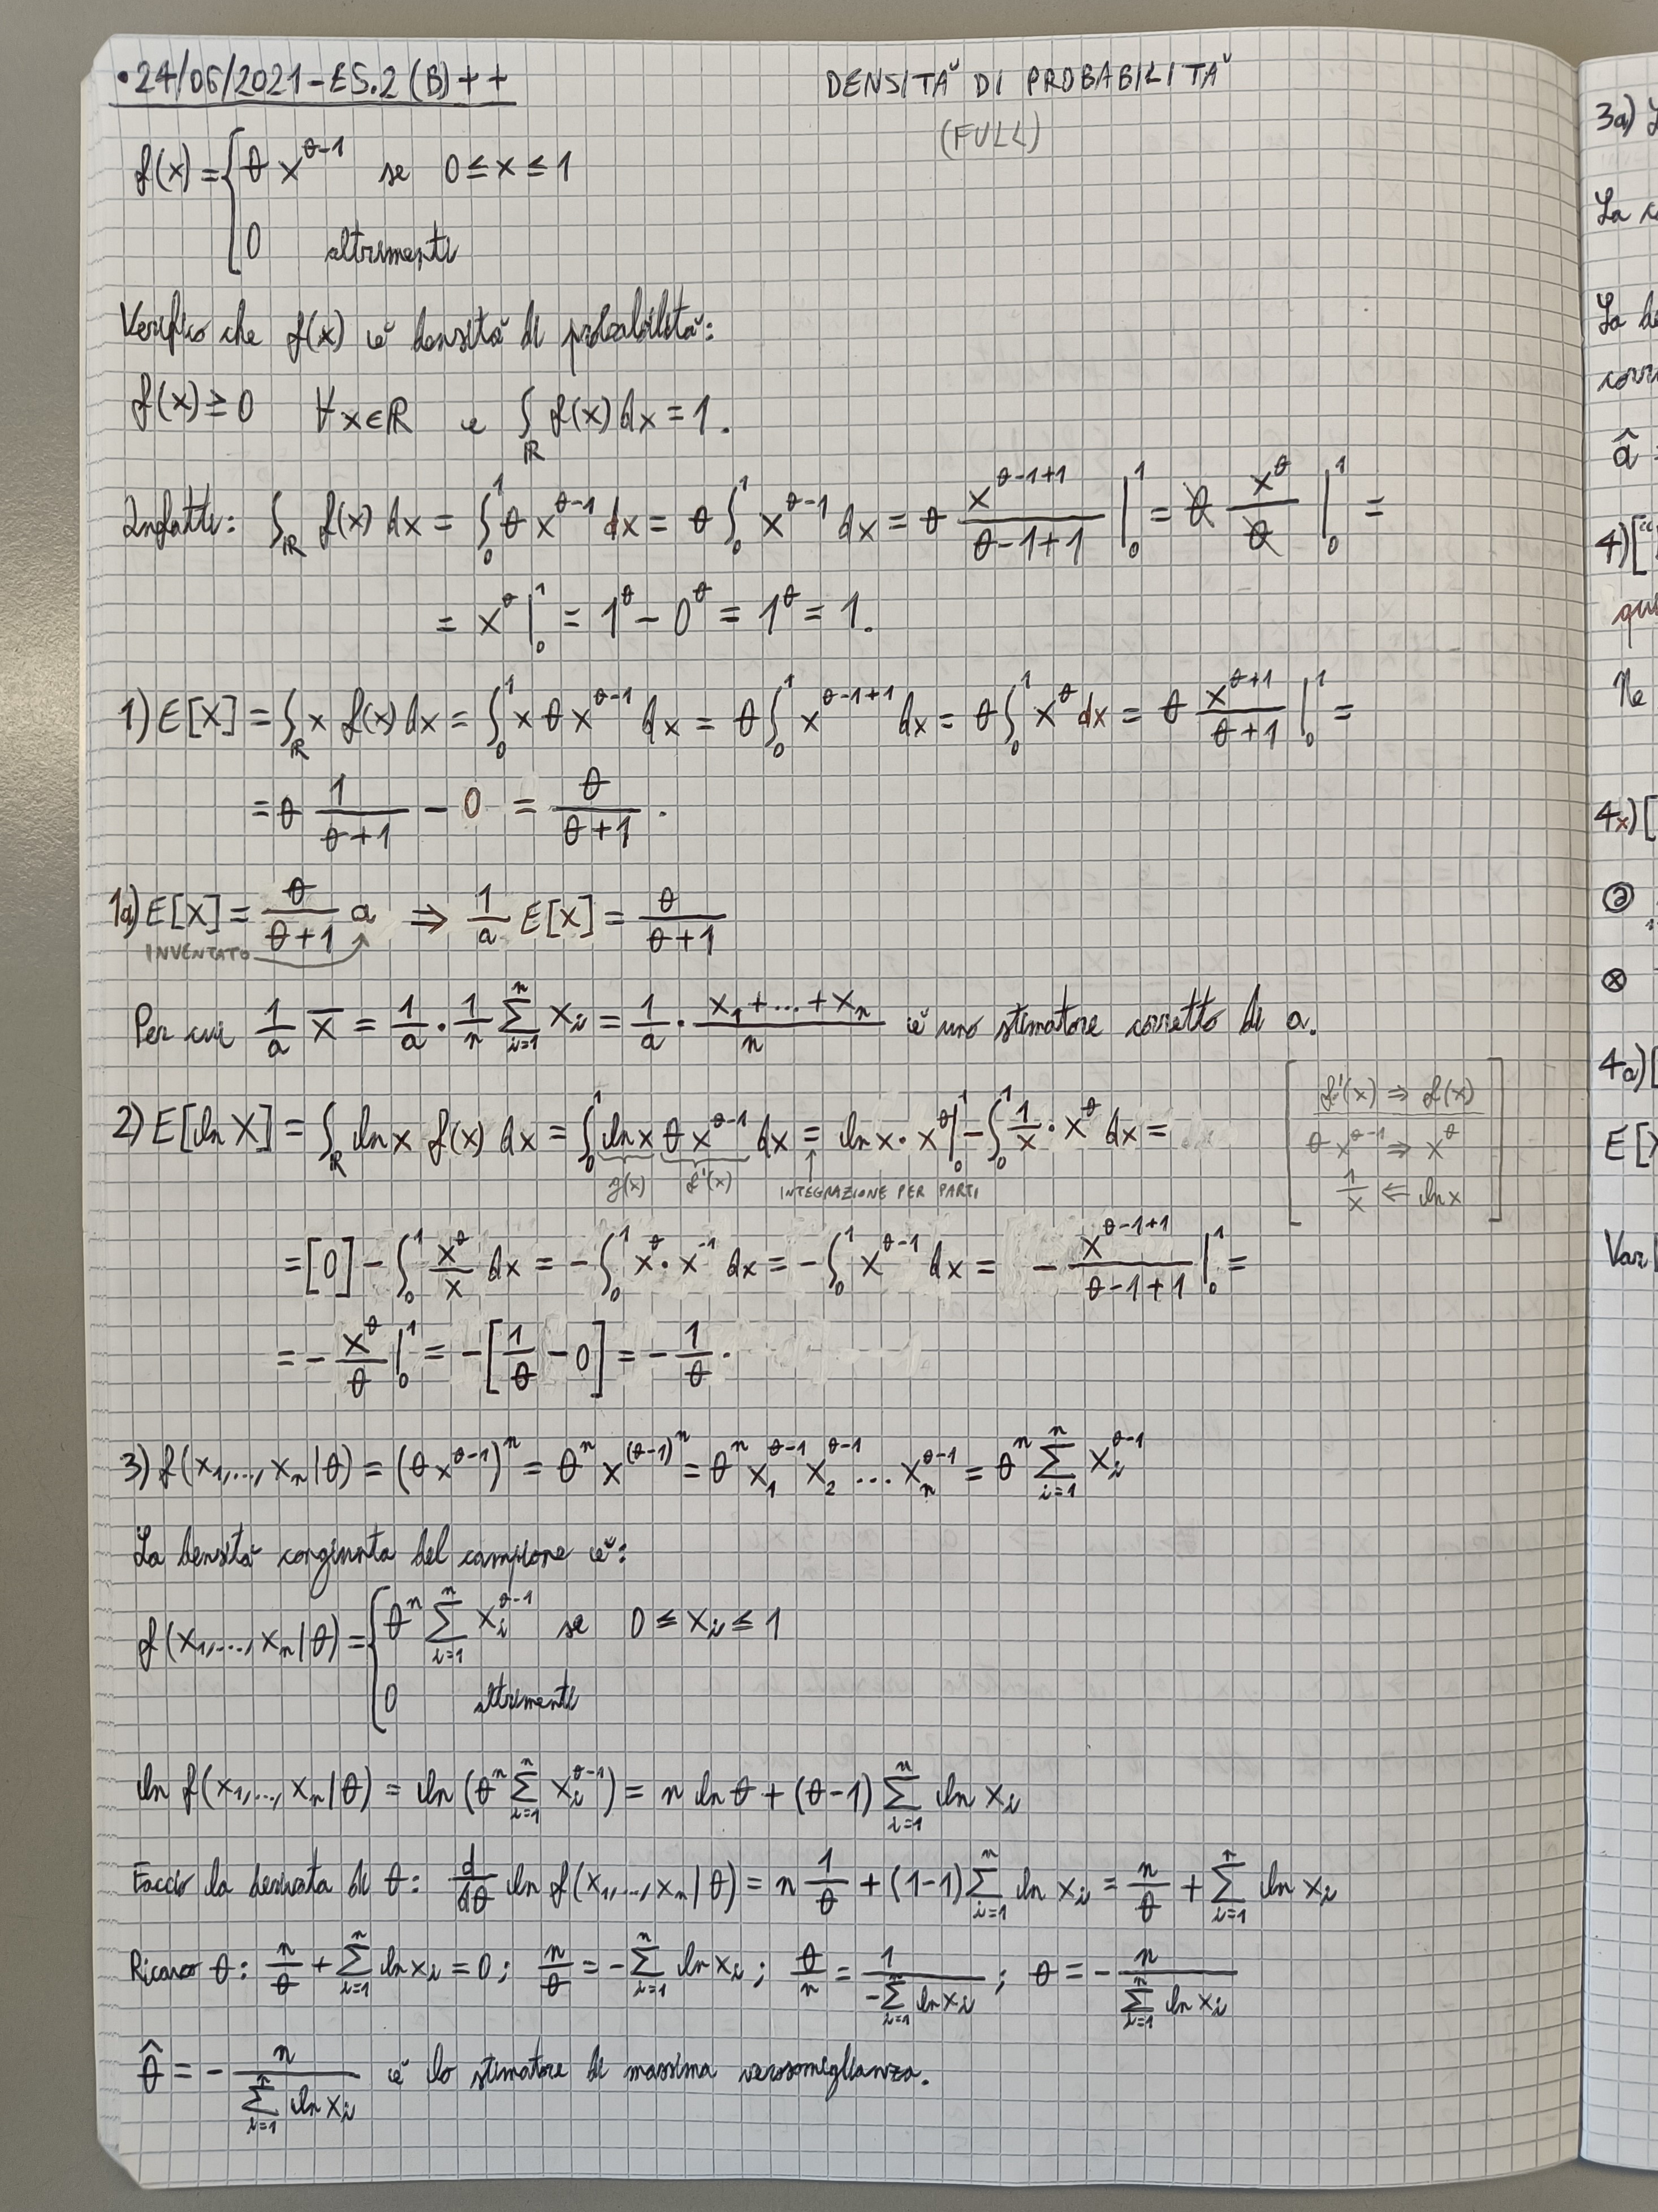 • 24/06/2021 - ES.2 (B) ++
DENSITÀ DI PROBABILITÀ
(FULL)
f(x) = { θ x^(θ-1) se 0 ≤ x ≤ 1
0 altrimenti
Verifico che f(x) è densità di probabilità:
f(x) ≥ 0 ∀x∈ℝ e ∫_ℝ f(x) dx = 1.
Infatti: ∫_ℝ f(x) dx = ∫_0^1 θ x^(θ-1) dx = θ ∫_0^1 x^(θ-1) dx = θ x^(θ-1+1)/(θ-1+1) |_0^1 = θ x^θ/θ |_0^1 =
= x^θ |_0^1 = 1^θ - 0^θ = 1^θ = 1.
1) E[X] = ∫_ℝ x f(x) dx = ∫_0^1 x θ x^(θ-1) dx = θ ∫_0^1 x^(θ-1+1) dx = θ ∫_0^1 x^θ dx = θ x^(θ+1)/(θ+1) |_0^1 =
= θ 1/(θ+1) - 0 = θ/(θ+1).
1a) E[X] = θ/(θ+1) a ⇒ 1/a E[X] = θ/(θ+1)
INVENTATO
Per cui 1/a X̄ = 1/a · 1/n ∑_{i=1}^n x_i = 1/a · (x_1 + ... + x_n)/n è uno stimatore corretto di a.
2) E[ln X] = ∫_ℝ ln x f(x) dx = ∫_0^1 ln x θ x^(θ-1) dx = ln x · x^θ |_0^1 - ∫_0^1 1/x · x^θ dx =
g(x) f'(x) INTEGRAZIONE PER PARTI
f'(x) ⇒ f(x)
θ x^(θ-1) ⇒ x^θ
1/x ⇐ ln x
= [0] - ∫_0^1 x^θ/x dx = - ∫_0^1 x^θ · x^(-1) dx = - ∫_0^1 x^(θ-1) dx = - x^(θ-1+1)/(θ-1+1) |_0^1 =
= - x^θ/θ |_0^1 = - [1/θ - 0] = - 1/θ.
3) f(x_1,..., x_n | θ) = (θ x^(θ-1))^n = θ^n x^((θ-1)^n) = θ^n x_1^(θ-1) x_2^(θ-1) ... x_n^(θ-1) = θ^n ∑_{i=1}^n x_i^(θ-1)
La densità congiunta del campione è:
f(x_1,..., x_n | θ) = { θ^n ∑_{i=1}^n x_i^(θ-1) se 0 ≤ x_i ≤ 1
0 altrimenti
ln f(x_1,..., x_n | θ) = ln (θ^n ∑_{i=1}^n x_i^(θ-1)) = n ln θ + (θ-1) ∑_{i=1}^n ln x_i
Faccio la derivata di θ: d/dθ ln f(x_1,..., x_n | θ) = n 1/θ + (1-1) ∑_{i=1}^n ln x_i = n/θ + ∑_{i=1}^n ln x_i
Ricavo θ: n/θ + ∑_{i=1}^n ln x_i = 0; n/θ = - ∑_{i=1}^n ln x_i; θ/n = 1/(-∑_{i=1}^n ln x_i); θ = - n/(∑_{i=1}^n ln x_i)
θ̂ = - n/(∑_{i=1}^n ln x_i) è lo stimatore di massima verosomiglianza.
3a)
La
La
â =
4) [
Ne
4x) [
4a) [
E[X
Var